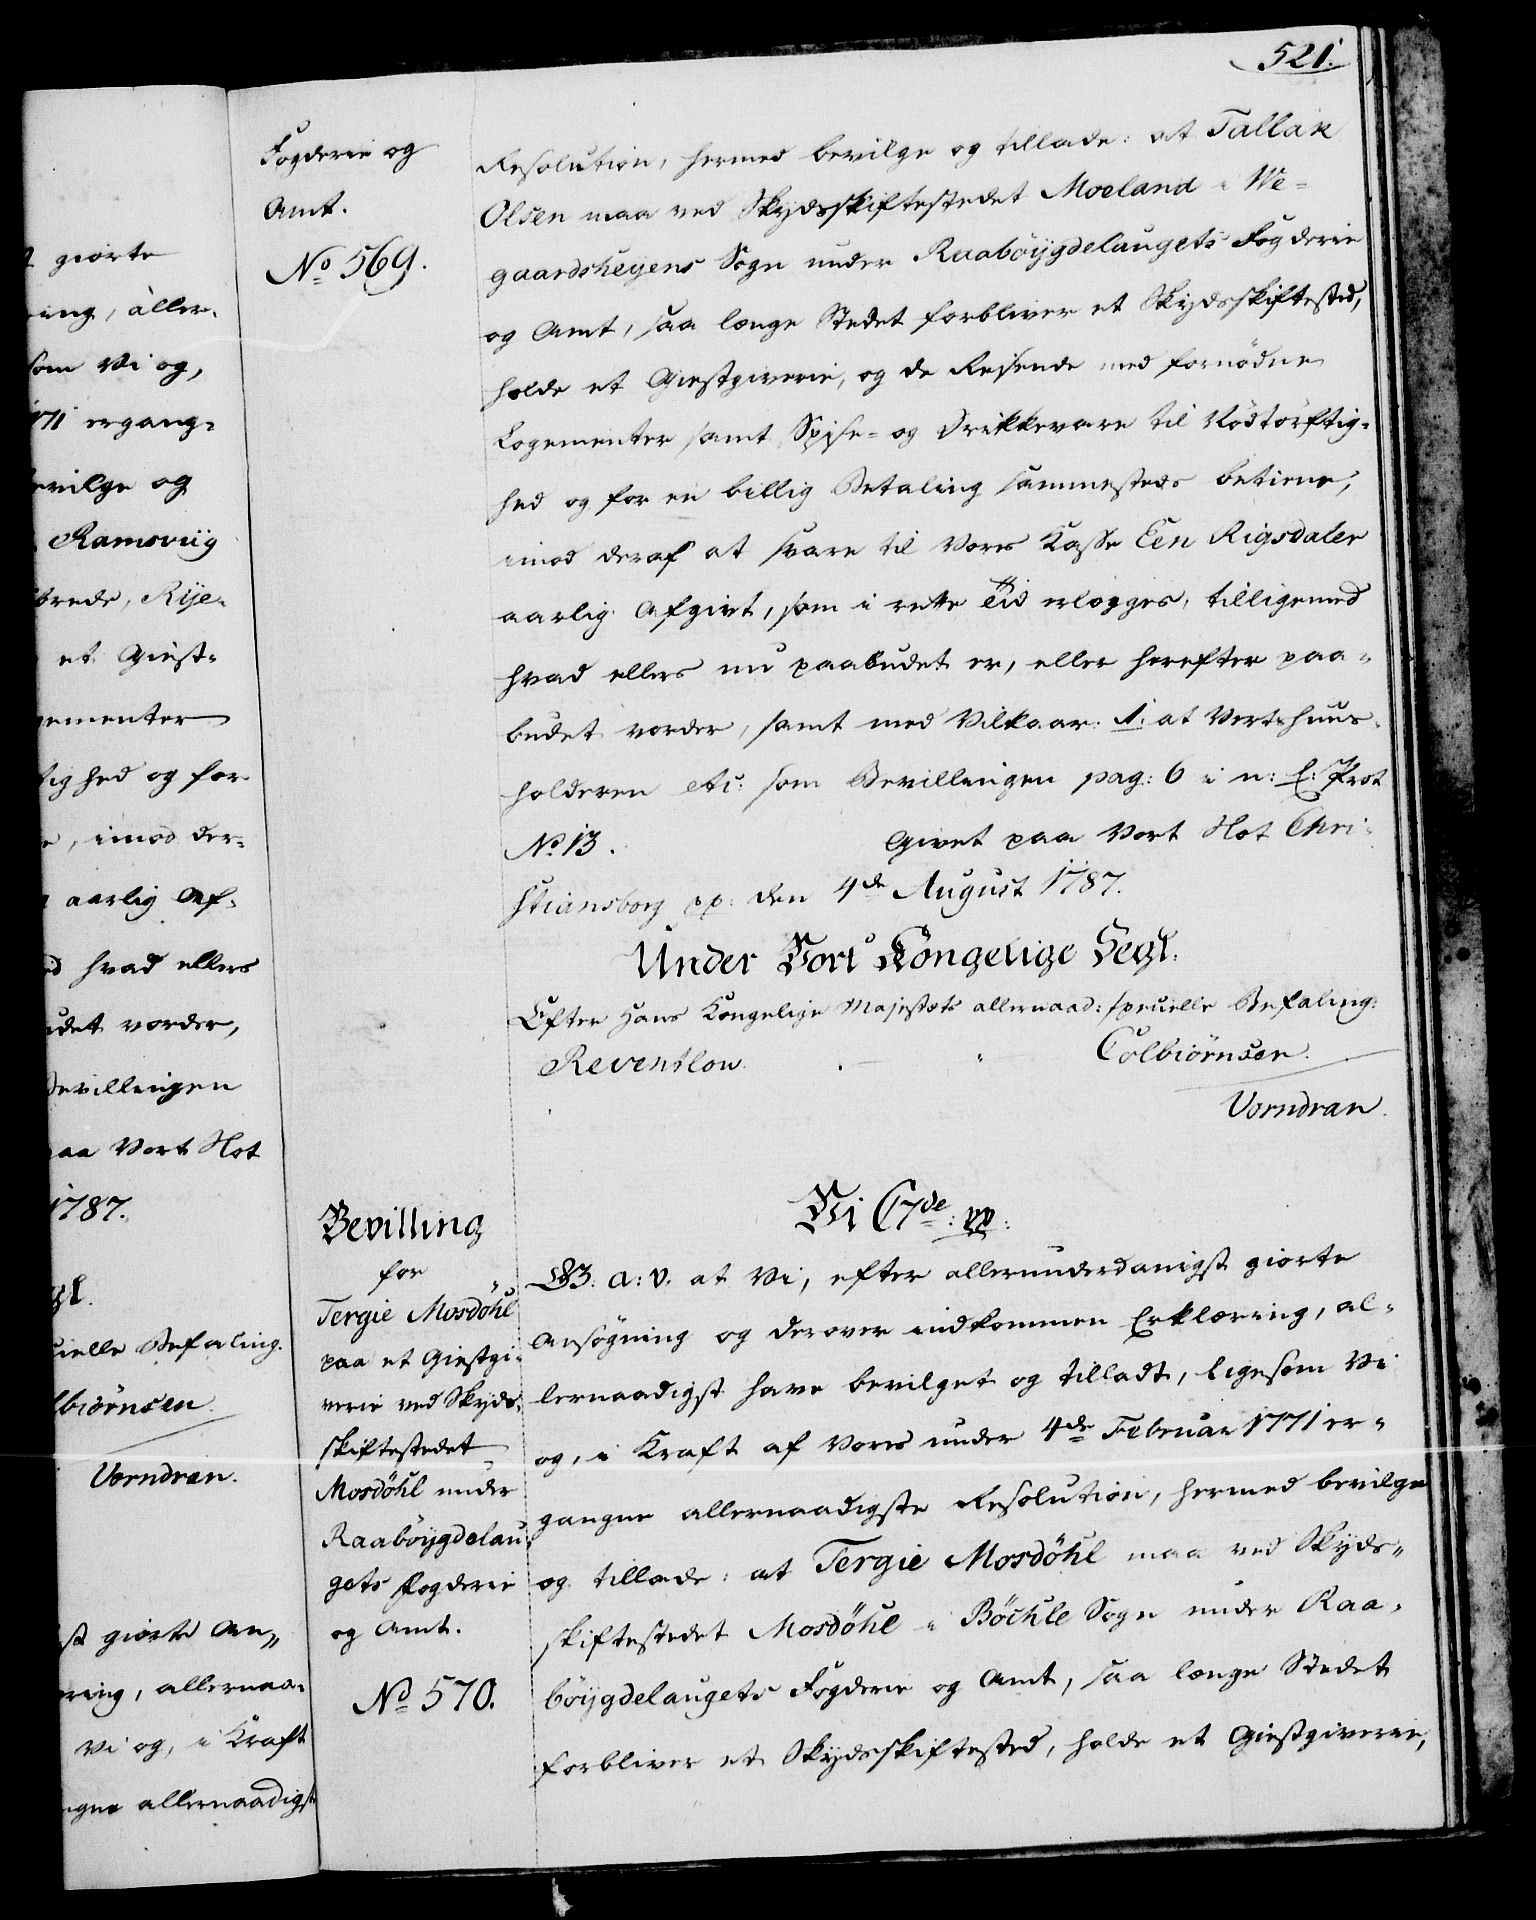 521.
giorte
ing, aller-
som Vi og,
1771 ergang-
bevilge og
Ramsviig
brede, Rije-
et Giest-
gementer
tighed og for
e, imod der-
aarlig Af-
hvad ellers
udet vorder,
Bevillingen
paa Vort Slot
1787.
gl.
cielle Befaling.
lbiørnsen.
Vorndran.
st giorte An-
ring, allernaa-
Vi og, i Kraft
ngne allernaadigst
Fogderie og
Amt.
No 569.
Resolution, hermed bevilge og tillade: at Tallak
Olsen maa ved Skydsskiftestedet Moeland i We-
gaardsheyens Sogn under Raabøygdelaugets Fogderie
og Amt, saa længe Stedet forbliver et Skydsskiftested,
holde et Giestgiverie, og de Reisende med fornødne
Logementer samt Spise- og Drikkevare til Nødtørftig-
hed og for en billig Betaling sammesteds betiene,
imod deraf at svare til Vores Kasse Een Rigsdaler
aarlig Afgivt, som i rette Tiid erlægges, tilligemed
hvad ellers nu paabudet er, eller herefter paa-
budet vorder, samt med Vilkaar: 1. at Vertshuus-
holderen etc: som Bevillingen pag: 6 i n: L: Prot
No 13. Givet paa Vort Slot Chri-
stiansborg pp: den 4de August 1787.
Under Vort Kongelige Segl.
Efter Hans Kongelige Majestæts allernaad: specielle Befaling:
Reventlow. Colbiørnsen.
Vorndran.
Bevilling
for
Tergie Mosdøhl
paa et Giestgi-
verie ved Skyds-
skiftestedet
Mosdøhl under
Raabøygdelau-
gets Fogderie
og Amt.
No 570.
Vi C7de: pp:
G. a: v. at Vi, efter allerunderdanigst giorte
Ansøgning og derover indkommen Erklæring, al-
lernaadigst have bevilget og tilladt, ligesom Vi
og, i Kraft af Vores under 4de Februar 1771 er-
gangne allernaadigste Resolution, hermed bevilge
og tillade: at Tergie Mosdøhl maa ved Skyds-
skiftestedet Mosdøhl i Bøchle Sogn under Raa-
bøygdelaugets Fogderie og Amt, saa længe Stedet
forbliver et Skydsskiftested, holde et Giestgiverie,